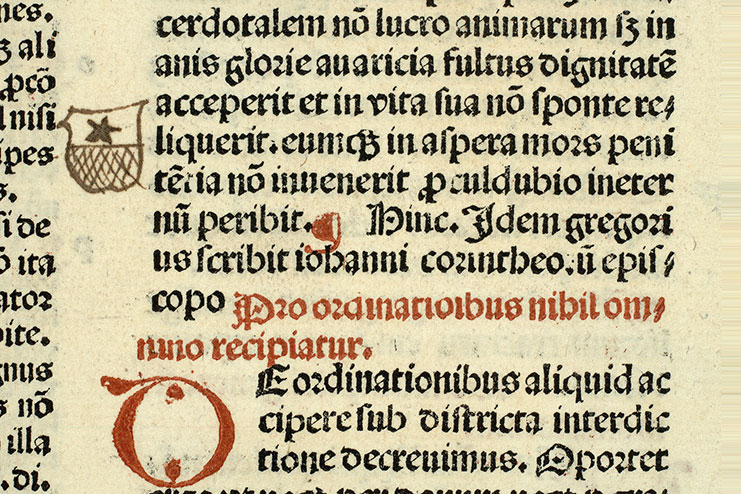 nes.
ʒ ali
ꝓcō
l nisi
ipes
s.
si de
ō ita
ator
bite.
gnus
s nō
illa
.di.
cerdotalem nō lucro animarum sʒ in
anis glorie auaricia fultus dignitatē
acceperit et in vita sua nō sponte re⸗
liquerit. eumqȝ in aspera mors peni
tētia nō inuenerit ꝓculdubio in eter
nū peribit. ¶ Hinc. Idem gregori
us scribit iohanni corintheo.ū epis⸗
copo Pro ordinatioibus nibil om⸗
nino recipiatur.
DE ordinationibus aliquid ac
cipere sub districta interdic
tione decreuimus. Oportet